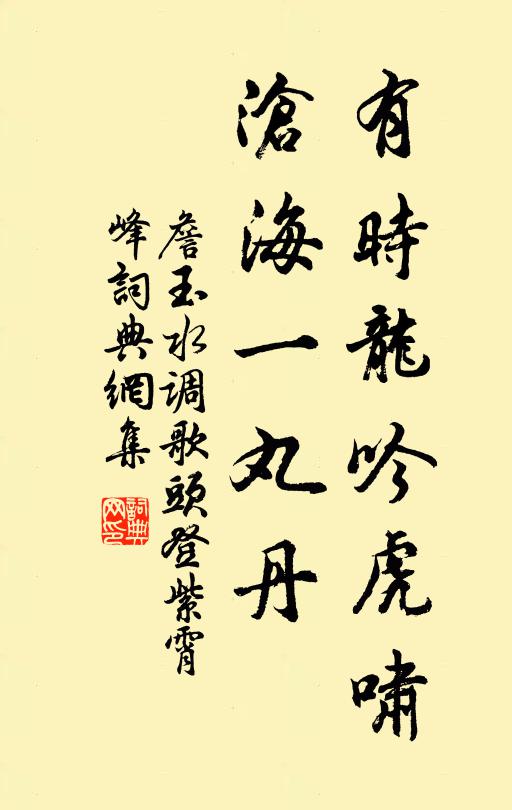 有時龍吟虎嘯
滄海一丸丹
詹玉水调歌頭登紫霄
峰詞典網集
詞典
网印